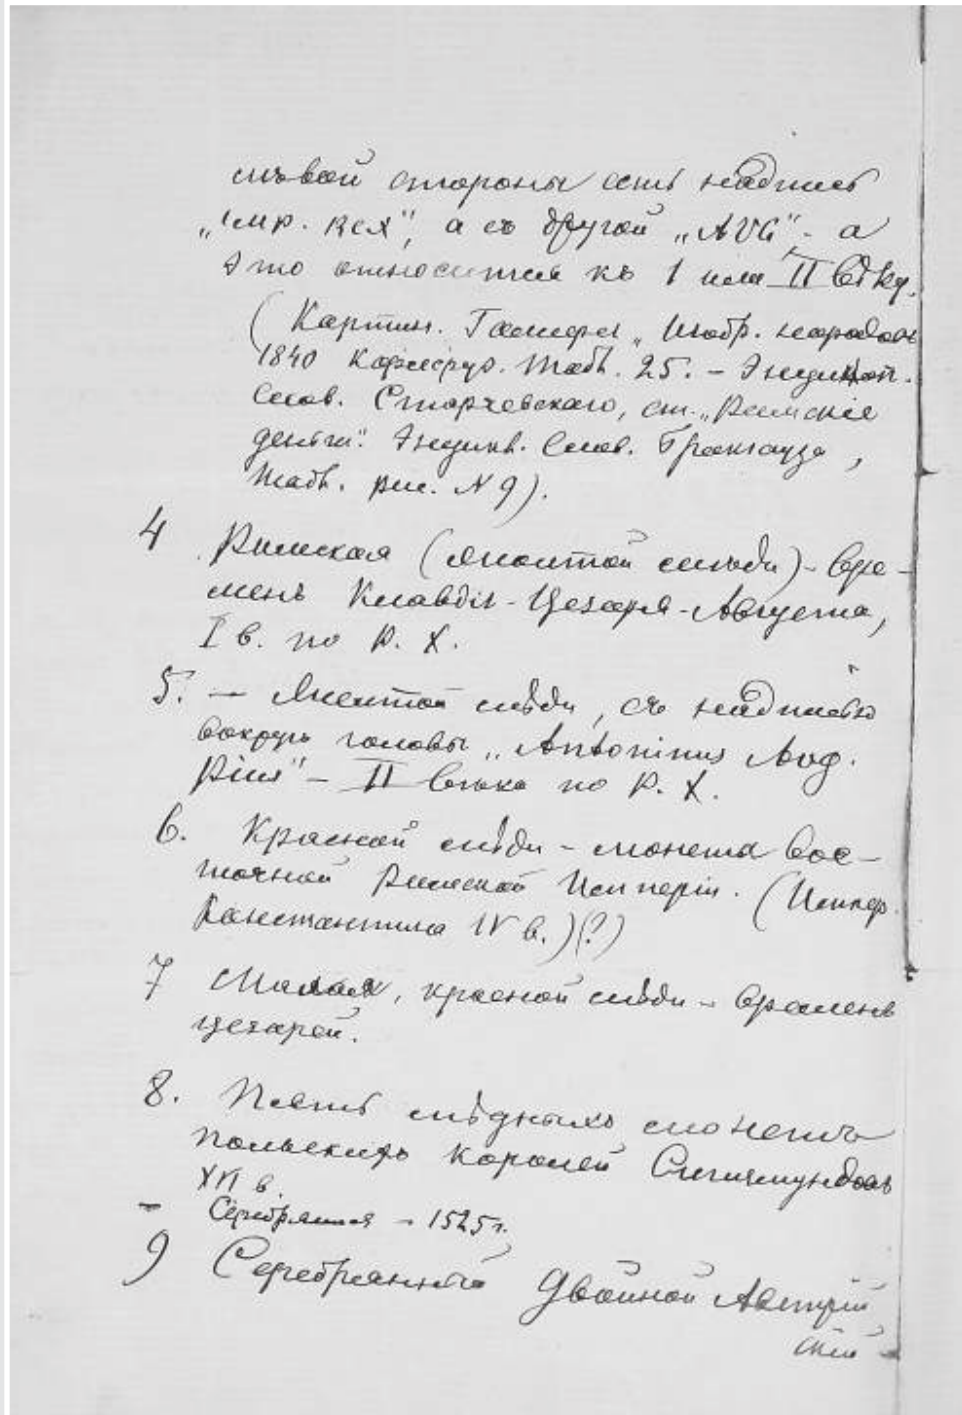 лѣвой стороны есть надпись
„имр. rex", а съ другой „AVG" - а
это относится къ 1 или II вѣку.
(Картин. „ Изобр. народовъ
1840 Карлсруэ. Табл. 25. - Энцикл.
Слов. Старчевскаго, ст. „Римскія
деньги". Энцикл. Слов. Брокгауза,
Табл. рис. N 9).
4 Римская (желтой мѣди) - вре-
менъ Клавдія - Цезаря - Августа,
I в. по Р. Х.
5. - Желтой мѣди, съ надписью
вокругъ головы „Antoninus Aug.
Pius" - II вѣка по Р. Х.
6. Красной мѣди - монета Вос-
точной Римской Имперіи. (Импер.
Константина IV в.)(?)
7 Малая, красной мѣди - временъ
цезарей.
8. Пять мѣдныхъ монетъ
польскихъ королей Сигизмундовъ
XVI в.
- Серебряная - 1525 г.
9 Серебрянный двойной Австрій
скій -